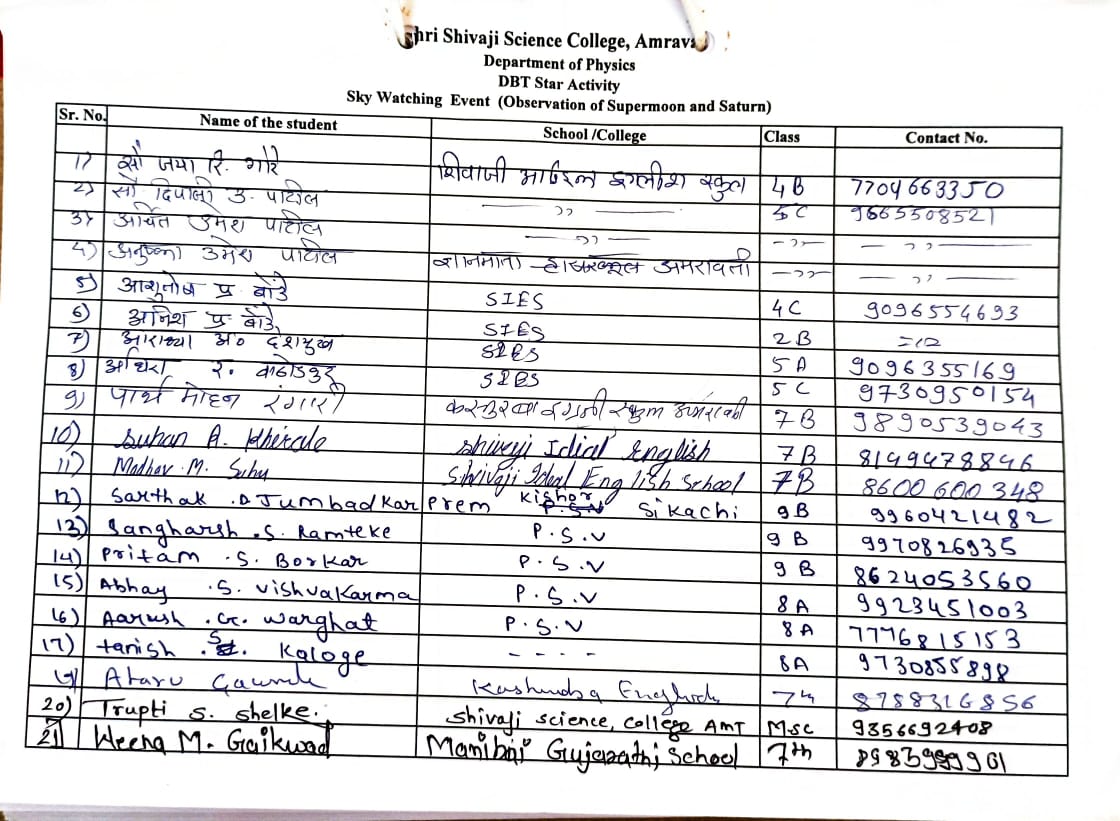 Shri Shivaji Science College, Amrava
Department of Physics
DBT Star Activity
Sky Watching Event (Observation of Supermoon and Saturn)
Sr. No. Name of the student School /College Class Contact No.
1) सौ जया रि. गोरे शिवाजी स्कुल 4B 7704663350
2) सौ दिपाली उ. पाटील —,,— 5C 9665508521
3) अर्चित उमेश पाटील —,,— —,,— —,,—
4) अनुष्का उमेश पाटील ज्ञानमाता हायस्कूल अमरावती —,,— —,,—
5) आशुतोष प्र बोंडे SIES 4C 9096554693
6) अनिश प्र बोंडे SIES 2B
7) आराध्या अ० देशमुख SIES 5A 9096355169
8) र. SIES 5C 9730950154
9) पार्थ मोहन रंगारी 7B 9890539043
10) Suhan A. Khirale Shivaji Idial English 7B 8149478846
11) Madhav M. Sahu Shivaji Ideal English School 7B 8600600348
12) Sarthak .D Jumbadkar Prem Kishor Sikachi 9B 9960421482
13) Sangharsh .S. Ramteke P.S.V 9 B 9970826935
14) Pritam .S. Borkar P.S.V 9 B 8624053560
15) Abhay .S. Vishvakarma P.S.V 8A 9923451003
16) Aarush .G. Warghat P.S.V 8A 7776815153
17) tanish .S. Kaloge - - - - 8A 9730855898
7th 8788316856
20) Trupti S. Shelke. Shivaji Science, College AMT MSC 9356692408
21) Heena M. Gaikwad Manibai Gujarathi School 7th